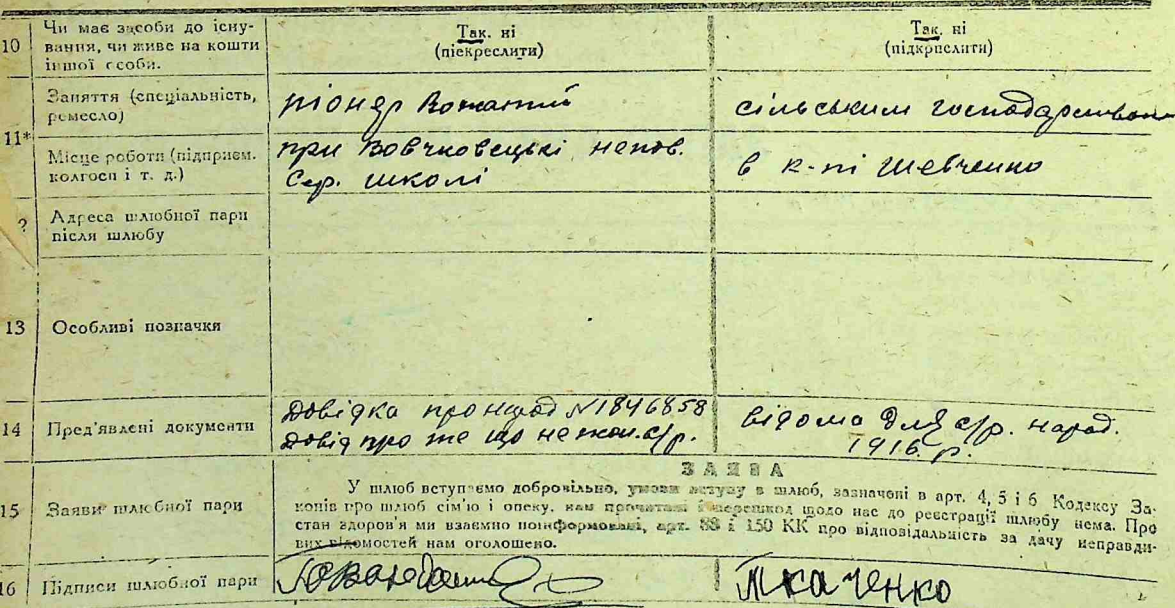 10 Чи має засоби до існу-
вання, чи живе на кошти
іншої особи.
Так, ні
(піекреслити)
Так, ні
(підкрпслити)
11*
Заняття (спеціальність,
ремесло)
піонер Вожатий
сільським господарством
Місце роботи (підприєм.
колгосп і т. д.)
при Вовчковецькі непов.
Сер. школі
в к-пі Шевченко
? Адреса шлюбної пари
після шлюбу
13 Особливі позначки
14 Пред'явлені документи
Довідка про N1846858
Довід про те що не с/р.
відома для с/р. народ.
1916 р.
ЗАЯВА
15 Заяви шлюбної пари
У шлюб вступаємо добровільно, умови вступу в шлюб, зазначені в арт. 4, 5 і 6 Кодексу За-
конів про шлюб сім'ю і опеку, нам прочитані і перешкод щодо нас до реєстрації шлюбу нема. Про
стан здоров'я ми взаємно поінформовані, арт. 88 і 150 КК про відповідальність за дачу неправди-
вих відомостей нам оголошено.
16 Підписи шлюбної пари
Ткаченко